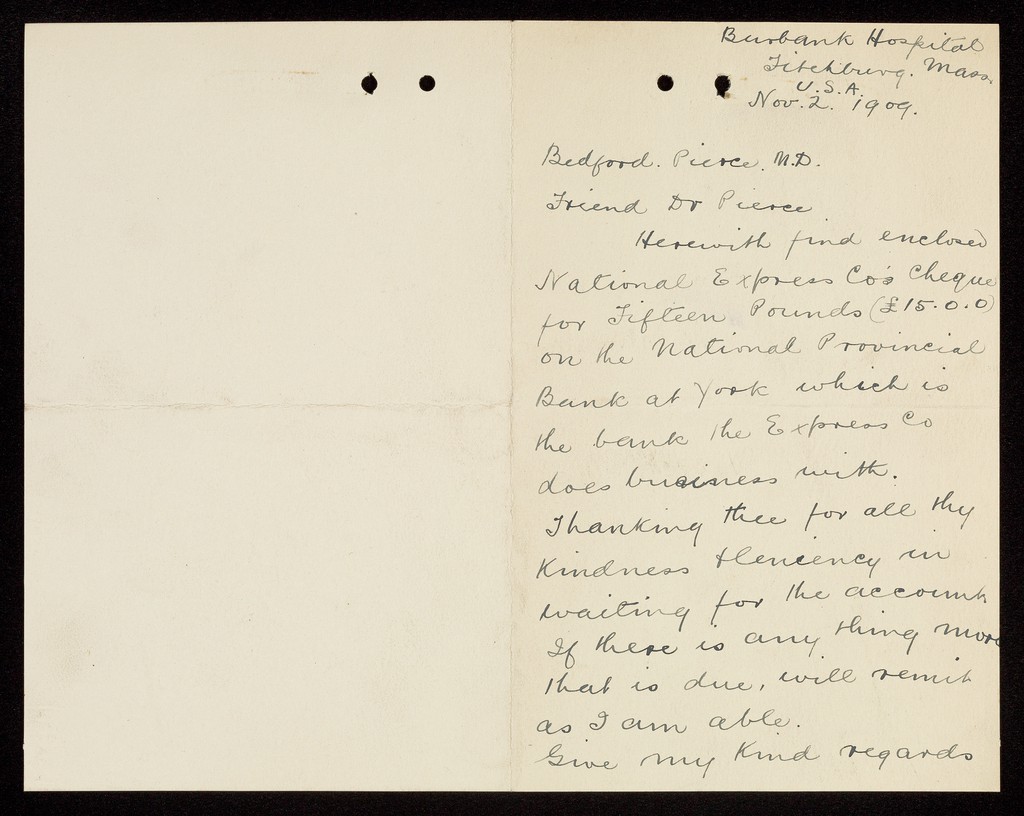 Burbank Hospital
Fitchburg. Mass.
U.S.A.
Nov. 2. 1909.
Bedford. Pierce. M.D.
Friend Dr Pierce
Herewith find enclosed
National Express Co's Cheque
for Fifteen Pounds (£15.0.0)
on the National Provincial
Bank at York which is
the bank the Express Co
does business with.
Thanking thee for all thy
Kindness & leniency in
waiting for the account
If there is any thing more
that is due, will remit
as I am able.
Give my Kind regards